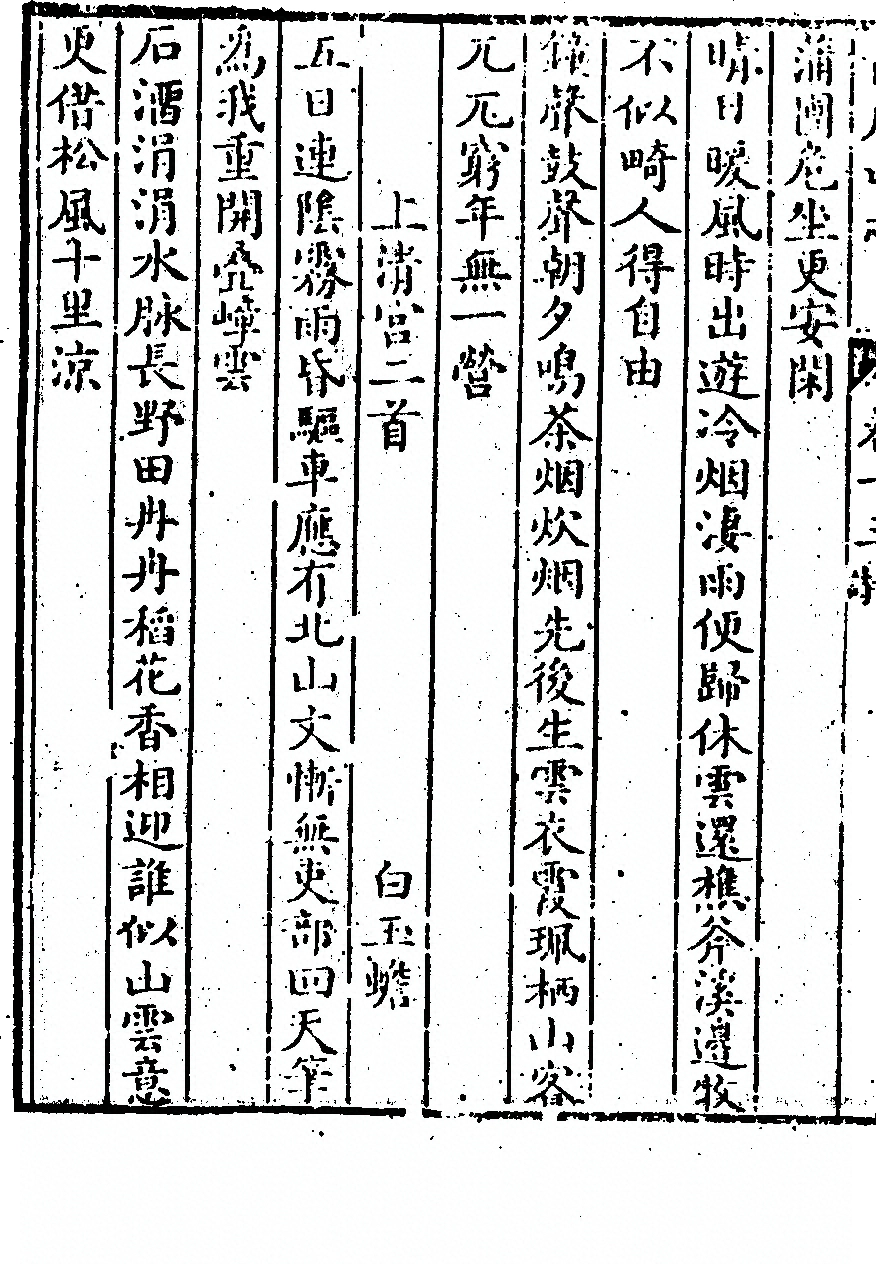 蒲團危坐更安閑
晴日暖風時出遊冷烟淒雨便歸休雲還樵斧溪邊牧
不似畸人得自由
鐘聲鼓聲朝夕鳴茶烟炊烟先後生雲衣霞珮栖山客
兀兀窮年無一營
上清宮二首 白玉蟾
五日連陰霧雨昏驅車應有北山文慚無吏部回天筆
爲我重開疊嶂雲
石溜涓涓水脉長野田冉冉稻花香相迎誰似山雲意
更借松風十里涼